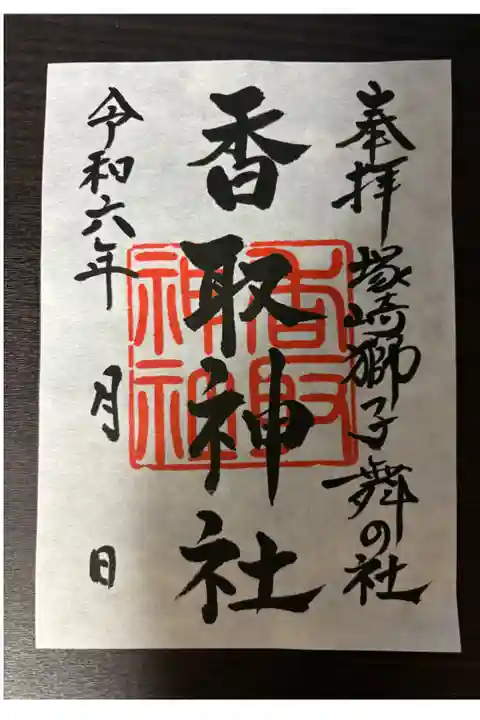 奉拝 塚崎獅子舞の社
香取神社
香取神社
令和六年 月 日